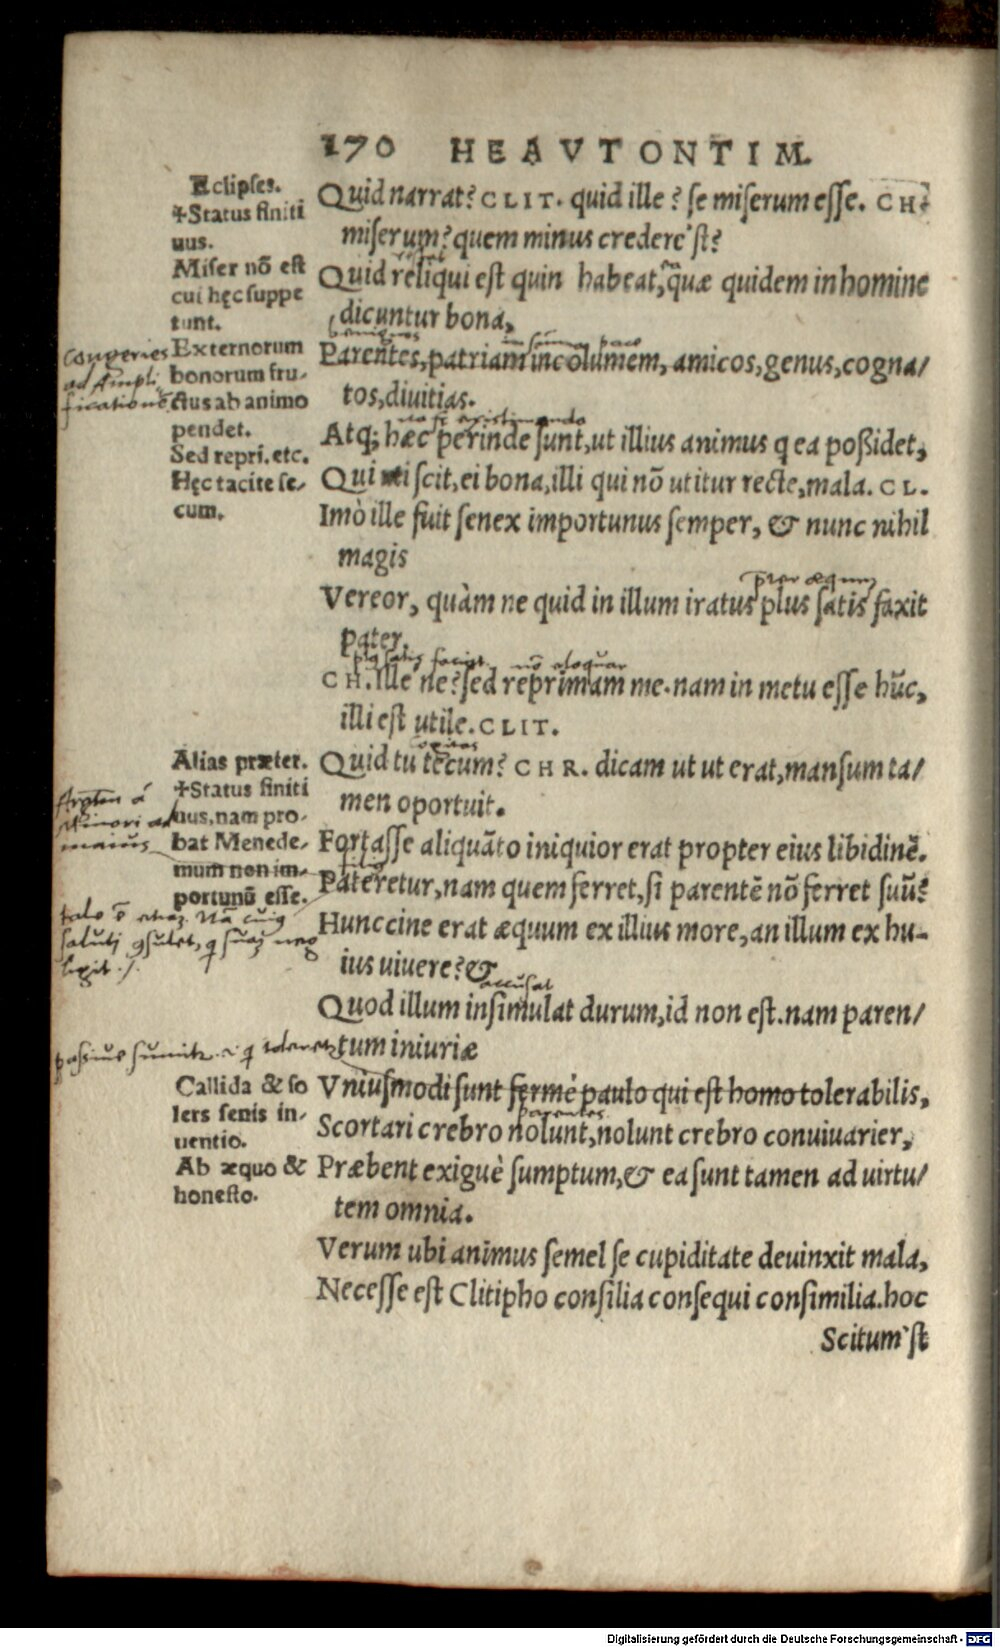 170 HEAVTONTIM.
Eclipses.
✢Status finiti
uus.
Miser nō est
cui hęc suppe
tunt.
Externorum
bonorum fru-
ctus ab animo
pendet.
Sed repri. etc.
Hęc tacite se-
cum.
Congeries
ad Ampli
ficationē
Quid narrat? CLIT. quid ille? se miserum esse. CH.
miserum? quem minus credere'st?
Quid reliqui est quin habeat, quæ quidem in homine
dicuntur bona,
Parentes, patriam incolumem, amicos, genus, cogna/
tos, diuitias.
Atq; hæc perinde sunt, ut illius animus q ea poßidet,
Qui uti scit, ei bona, illi qui nō utitur recte, mala. CL.
Imò ille fuit senex importunus semper, & nunc nihil
magis
præter æquum
Vereor, quàm ne quid in illum iratus plus satis faxit
pater.
nō eloquar
CH. Ille ne? sed reprimam me. nam in metu esse hūc,
illi est utile. CLIT.
cogitas
Alias præter.
✢Status finiti
uus, nam pro-
bat Menede-
mum non im-
portunū esse.
à
Minori ad
maius
Quid tu tecum? CHR. dicam ut ut erat, mansum ta/
men oportuit.
Fortasse aliquāto iniquior erat propter eius libidinē.
filius
Pateretur, nam quem ferret, si parentē nō ferret suū?
Hunccine erat æquum ex illius more, an illum ex hu-
ius uiuere? &
accusat
Quod illum insimulat durum, id non est. nam paren/
tum iniuriæ
passiue sumit
Callida & so
lers senis in-
uentio.
Ab æquo &
honesto.
Vniusmodi sunt fermè paulo qui est homo tolerabilis,
parentes
Scortari crebro nolunt, nolunt crebro conuiuarier,
Præbent exiguè sumptum, & ea sunt tamen ad uirtu/
tem omnia.
Verum ubi animus semel se cupiditate deuinxit mala,
Necesse est Clitipho consilia consequi consimilia. hoc
Scitum'st
Digitalisierung gefördert durch die Deutsche Forschungsgemeinschaft - DFG